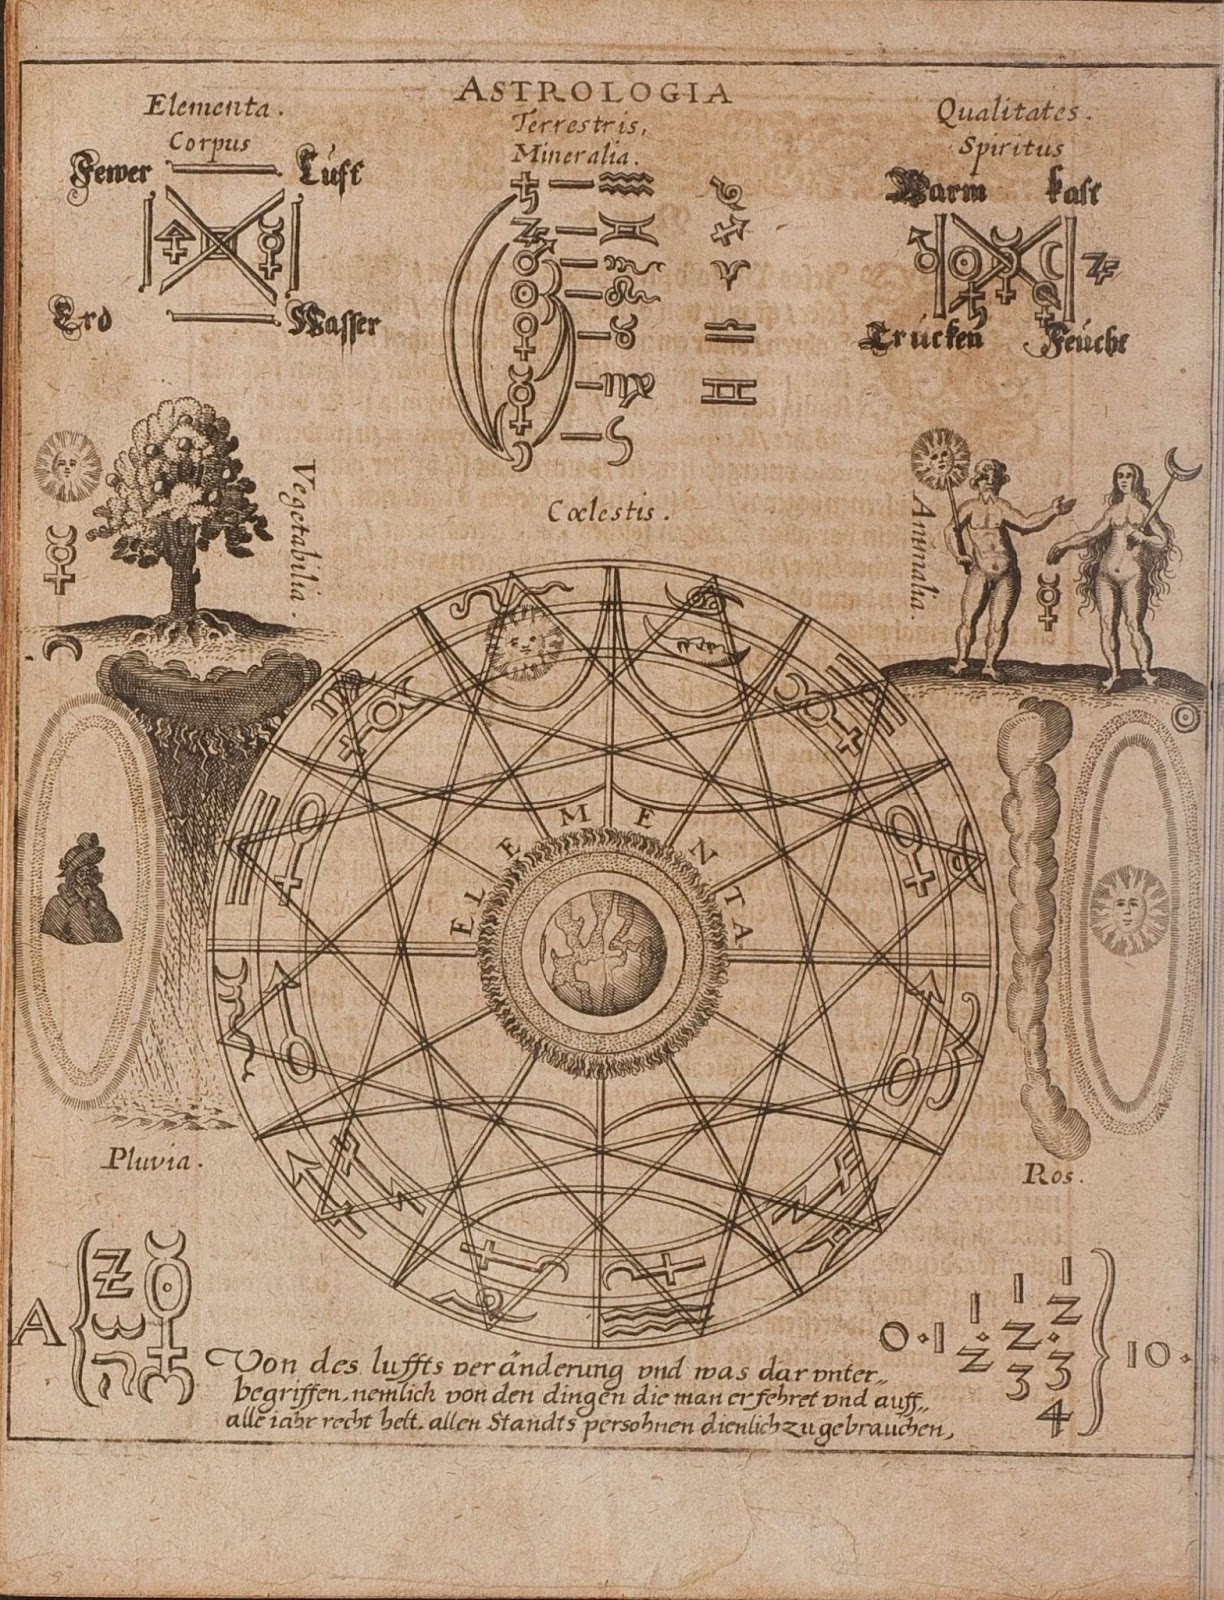 ASTROLOGIA
Terrestris,
Mineralia.
Elementa.
Corpus
Fewer Lufft
Erd Wasser
Qualitates.
Spiritus
Warm kalt
Trücken Feücht
Vegetabilia.
Animalia.
Cœlestis.
ELEMENTA
Pluvia.
Ros.
A
0·1
1·2
1 2 3
1 2·3 4
10·
Von des luffts veränderung vnd was dar vnter„
begriffen, nemlich von den dingen die man erfehret vnd auff„
alle iahr recht helt. allen Standts persohnen dienlich zu gebrauchen,